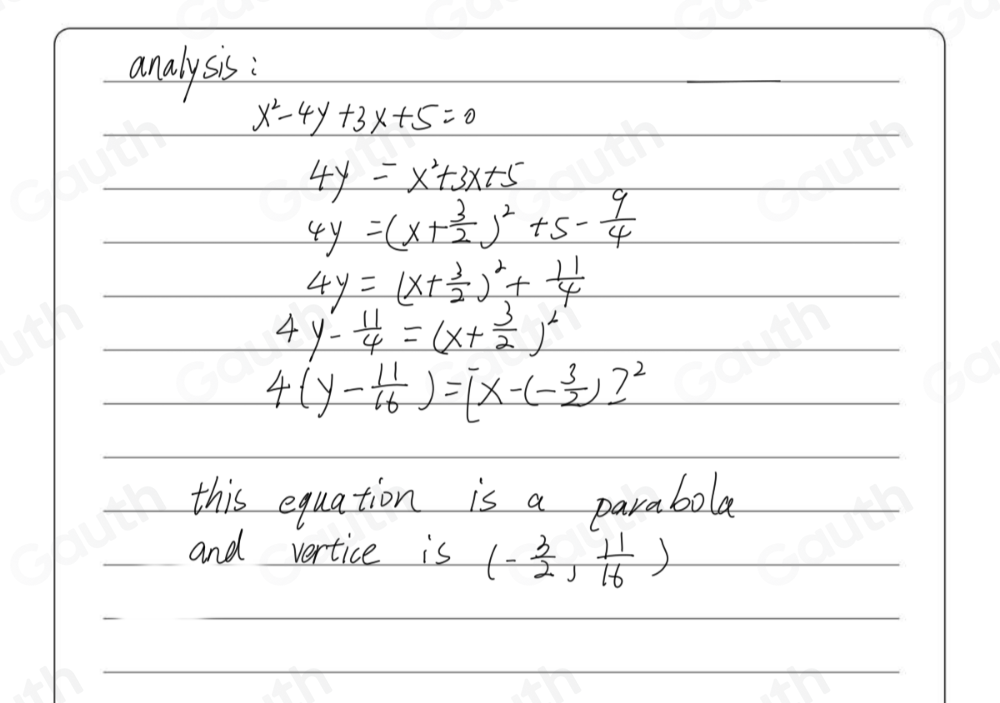 analysis:
x²-4y+3x+5=0
4y = x²+3x+5
4y =(x+3/2)² +5-9/4
4y = (x+3/2)²+ 11/4
4y-11/4 = (x+3/2)²
4(y-11/16)=[x-(-3/2)]²
this equation is a parabola
and vertice is (-3/2, 11/16)